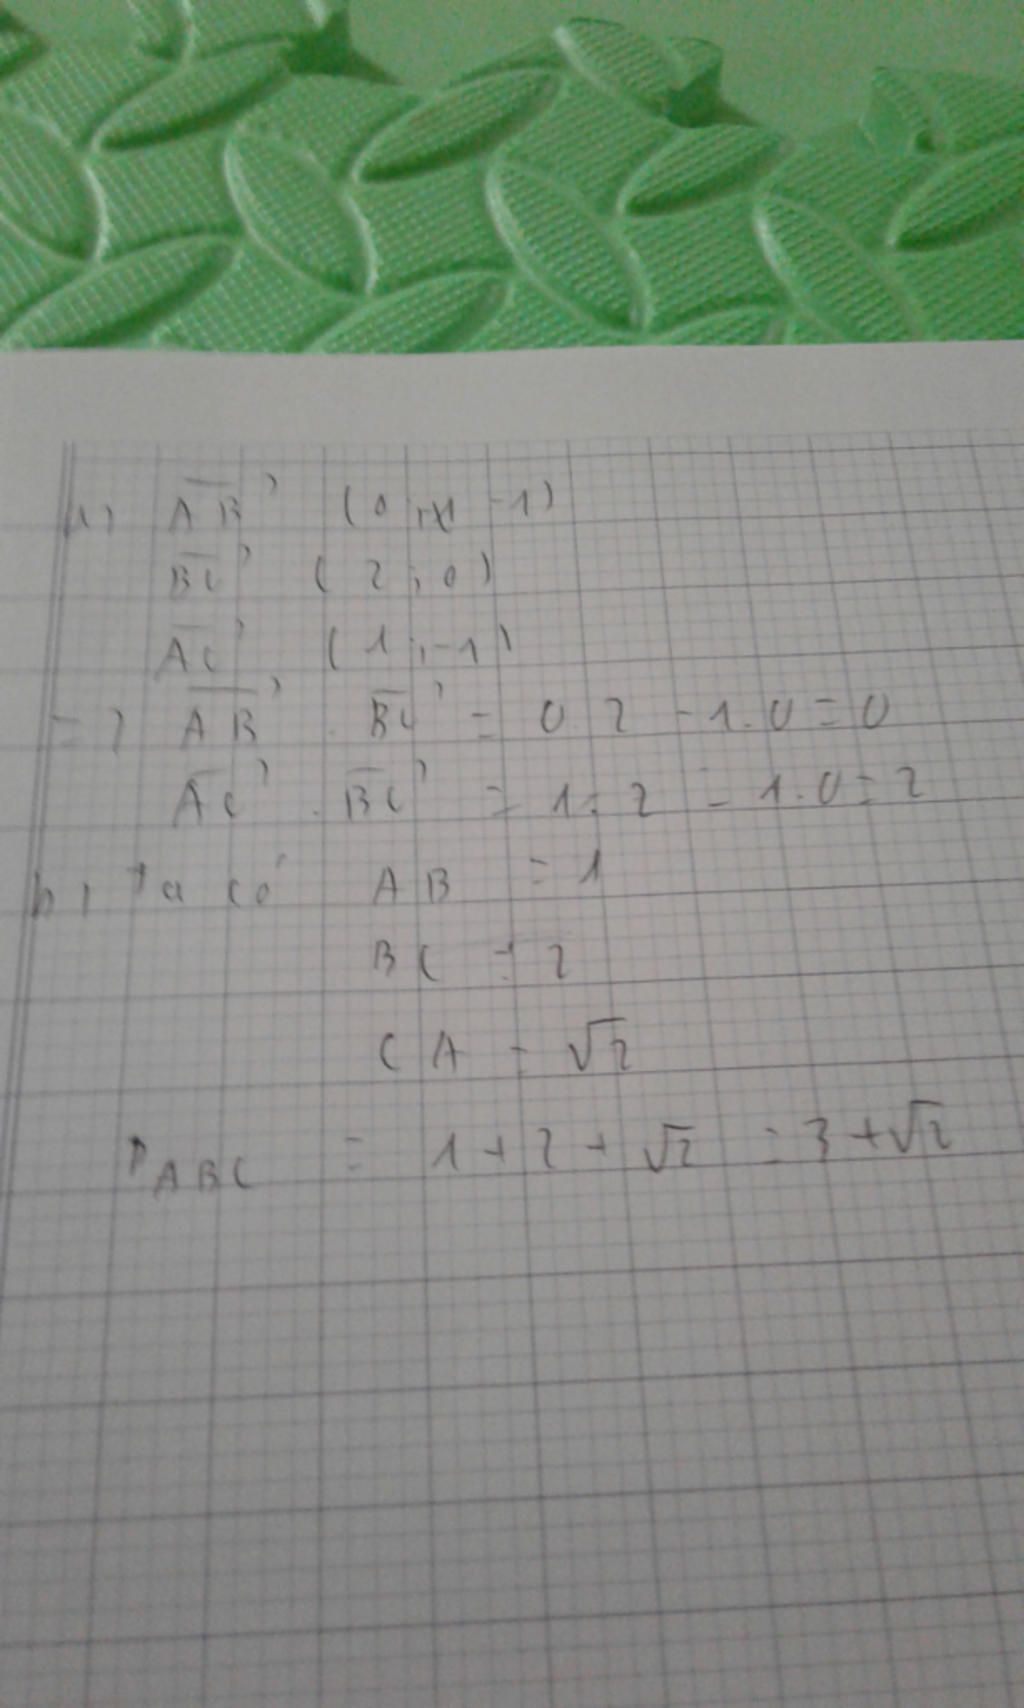 a, AB (0 ; -1)
BC ( 2 ; 0 )
AC ( 1 ; -1 )
=> AB . BC = 0.2 - 1.0 = 0
AC . BC = 1.2 - 1.0 = 2
b, Ta có AB = 1
BC = 2
CA = √2
P ABC = 1 + 2 + √2 = 3 + √2